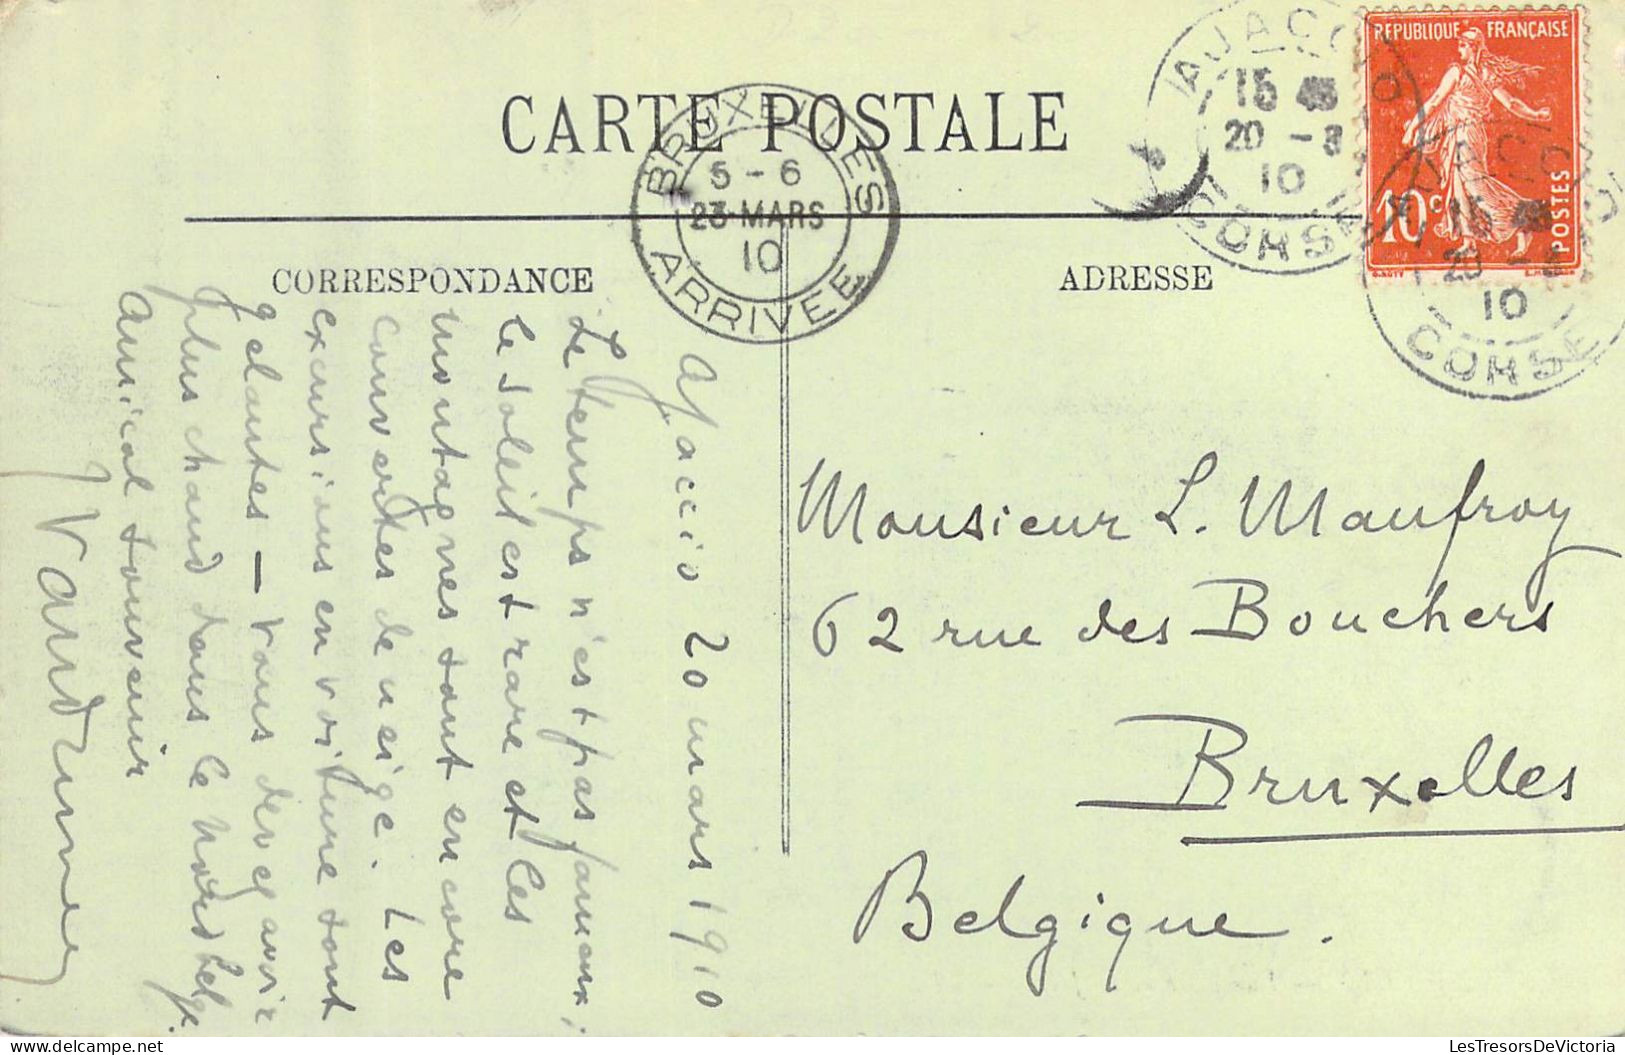 CARTE POSTALE
BRUXELLES
5-6
23 MARS
10
ARRIVEE
AJACCIO
15 45
20 -3
10
CORSE
REPUBLIQUE FRANÇAISE
10 c
POSTES
AJACCIO
15 45
20 -3
10
CORSE
CORRESPONDANCE
ADRESSE
Ajaccio 20 mars 1910
Le temps n'est pas fameux ;
le soleil est rare et les
montagnes sont encore
couvertes de neige. Les
excursions en voiture sont
gelantes — Vous devez avoir
plus chaud dans le nord belge.
Amical souvenir
Monsieur L. Maufroy
62 rue des Bouchers
Bruxelles
Belgique.
LesTresorsDeVictoria
www.delcampe.net